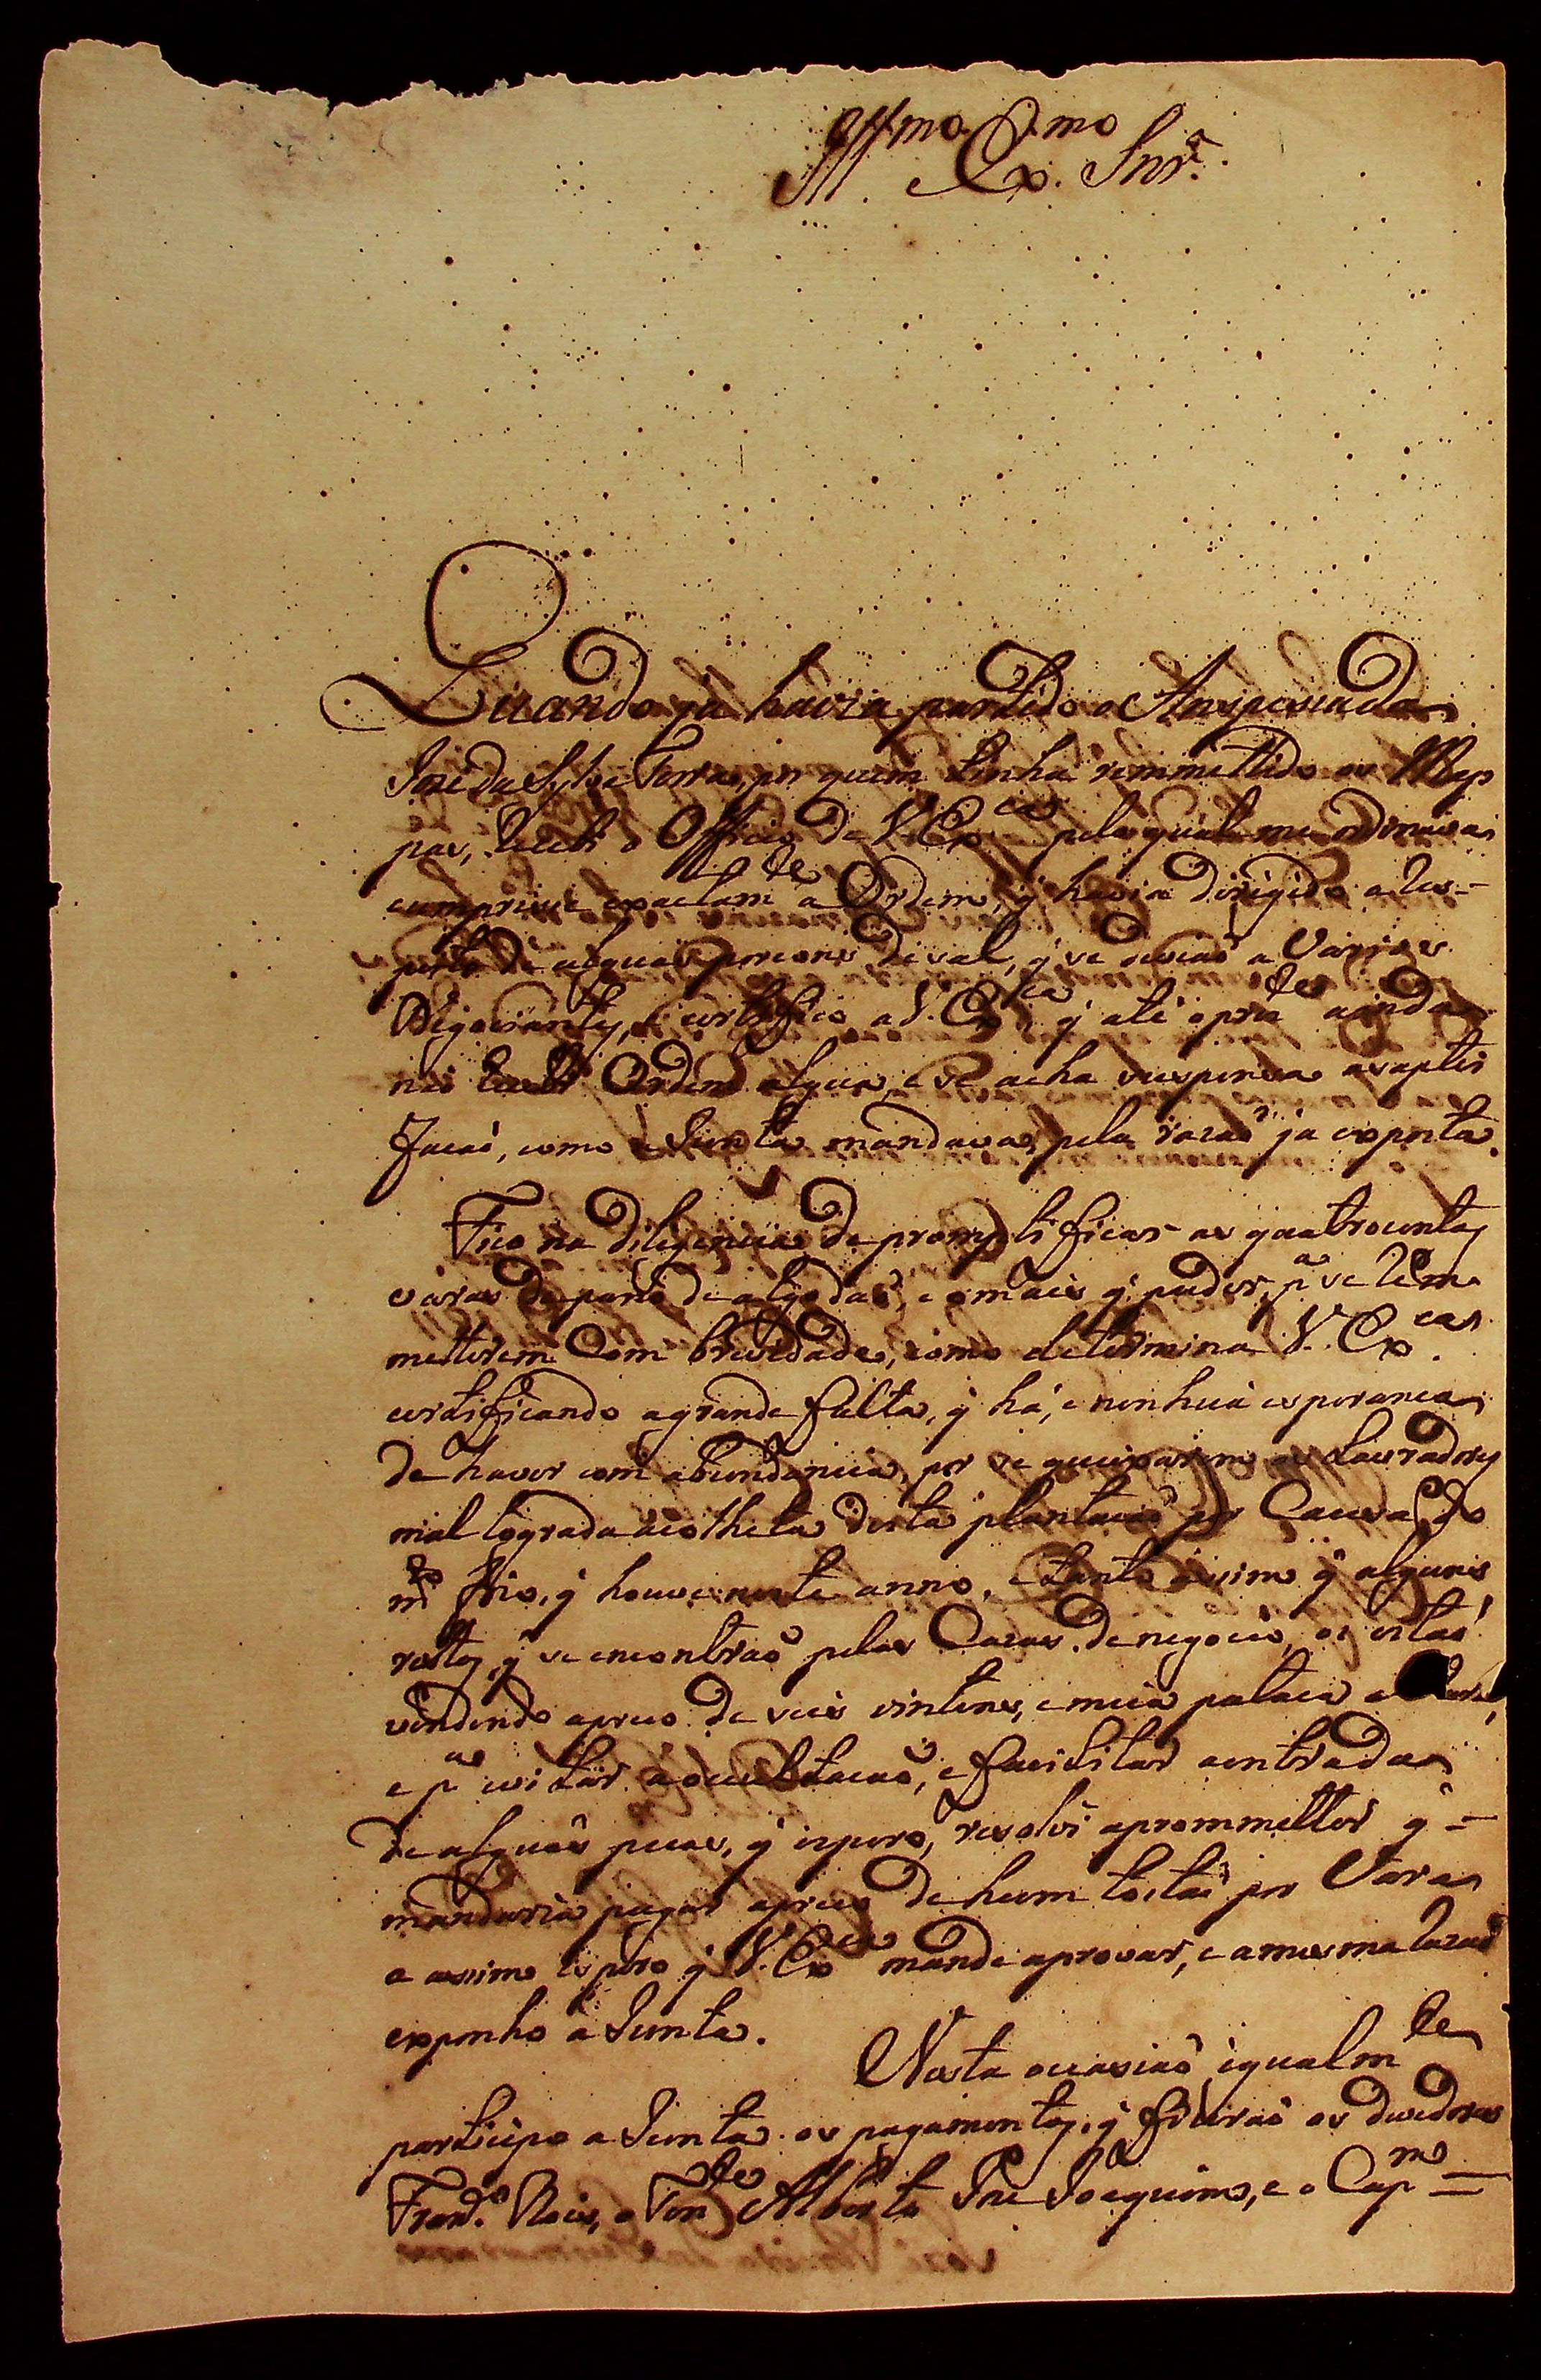 Illmo. Exmo. Snr.
Quando já havia partido o Anspesada
Joze da Sylva Ferras, por quem tinha remmettido os Map
pas, recebi o Officio de V. Exca pelo qual me ordenava
cumprisse exactamte a Ordem, q̃ havia dirigido a res-
peito de alguãs porcoens de sal, q̃ se deviaõ a varios
Negociantes, e certifico a V. Exca q̃ até o prezte ainda
naõ recebi Ordem algua, e se acha suspensa a
como a Junta mandava, pela razaõ já exposta.
Fico na diligencia de promptificar as quatrocentas
váras de pano de algodaõ, e o mais q̃ puder, pa se rem
metterem com brevidade, como determina V. Exca.
certificando a grande falta, q̃ há, e nenhuã esperanca
de haver com abundancia, por se queixarem os Lavradores
mal lograda a colheta desta plantacaõ por Cauza do
mto frio, q̃ houve neste anno, e tanto assim q̃ alguns
restos, q̃ se encontraõ pelas Cazas de negocio, os estaõ
vendendo a preco de seis vintens, e meia pataca a vara,
e pa evitar a occultacaõ, e facilitar a entrada
de alguãs pecas, q̃ espero, resolvi a prommetter q̃ =
mandaria pagar a preco de hum tostaõ por Vara
e assim espero q̃ V. Exca mande aprovar, e a mesma razaõ
exponho a Junta.
Nesta occasiaõ igualmte
participo a Junta os pagamentos, q̃ fizeraõ os devedores
Franco. Reis, o Tente Alberto Joze Joaquim, e o Capm =